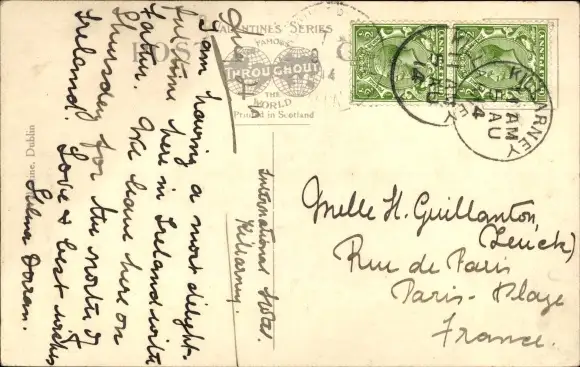 VALENTINE'S SERIES
POST
FAMOUS
THROUGHOUT
THE
WORLD
Printed in Scotland
KILLARNEY
AM
AU
4
I am having a most delight-
ful time here in Ireland with
Father. We leave here on
Thursday for the North of
Ireland. Love & best wishes
International Hotel
Killarney.
Melle H. Guillanton
Rue de Paris
Paris-Plage
France.
Dublin